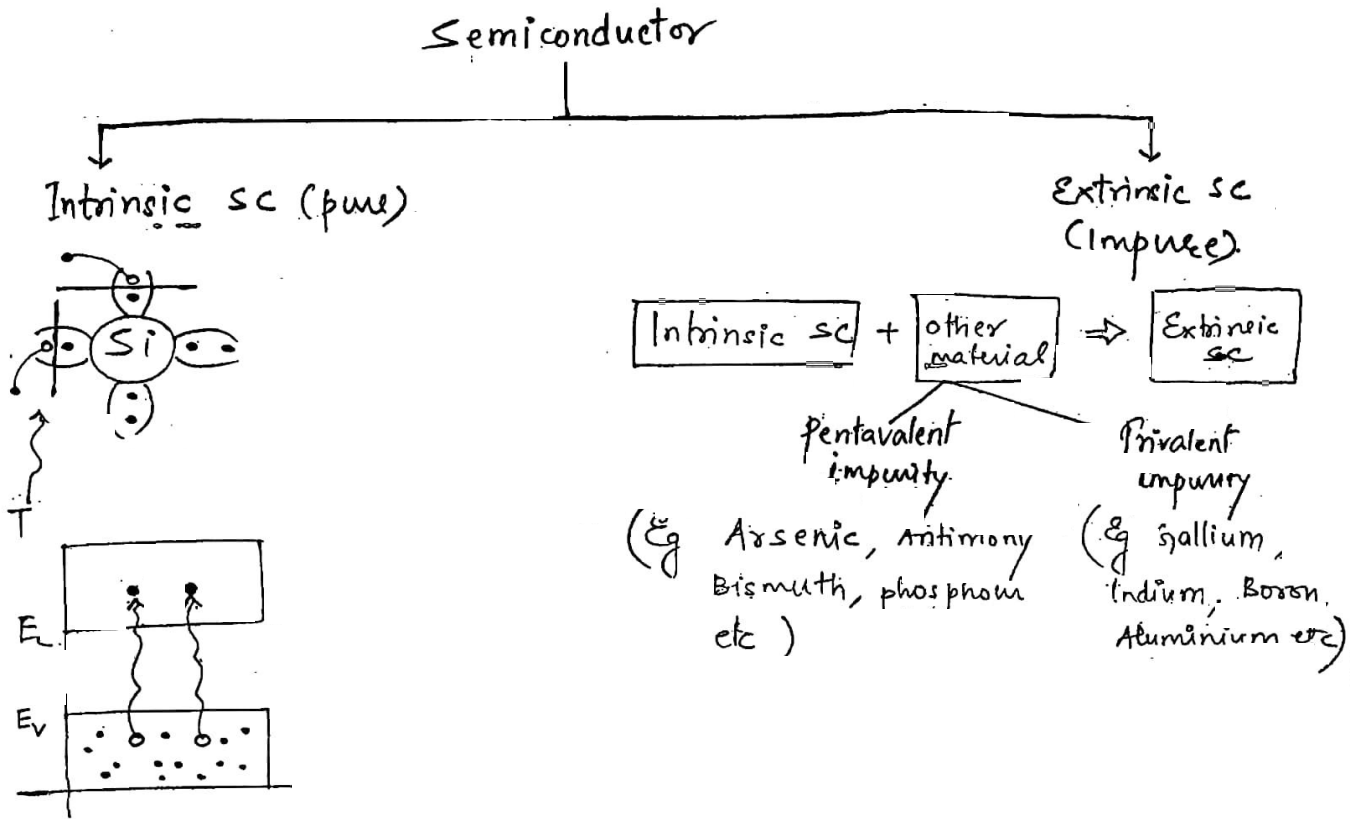 Semiconductor
Intrinsic SC (pure)
Extrinsic SC
(Impure).
Si
T
Intrinsic SC + other material ⇒ Extrinsic SC
Pentavalent
impurity.
Trivalent
impurity
(Eg Arsenic, Antimony
Bismuth, phosphour
etc )
(Eg Gallium,
Indium, Boron,
Aluminium etc)
E
Ev